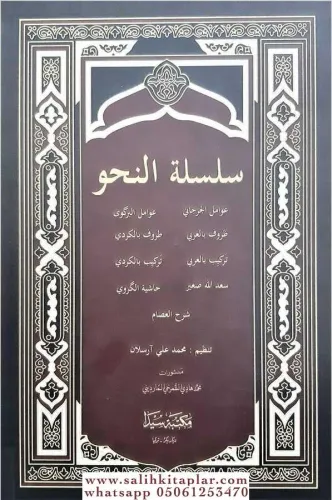 سلسلة النحو
عوامل الجرجاني عوامل البركوى
ظروف بالعربي ظروف بالكردي
تركيب بالعربي تركيب بالكردي
سعد الله صغير حاشية الكروي
شرح العصام
تنظيم : محمد علي آرسلان
منشورات
مكتبة سيدا
www.salihkitaplar.com
whatsapp 05061253470